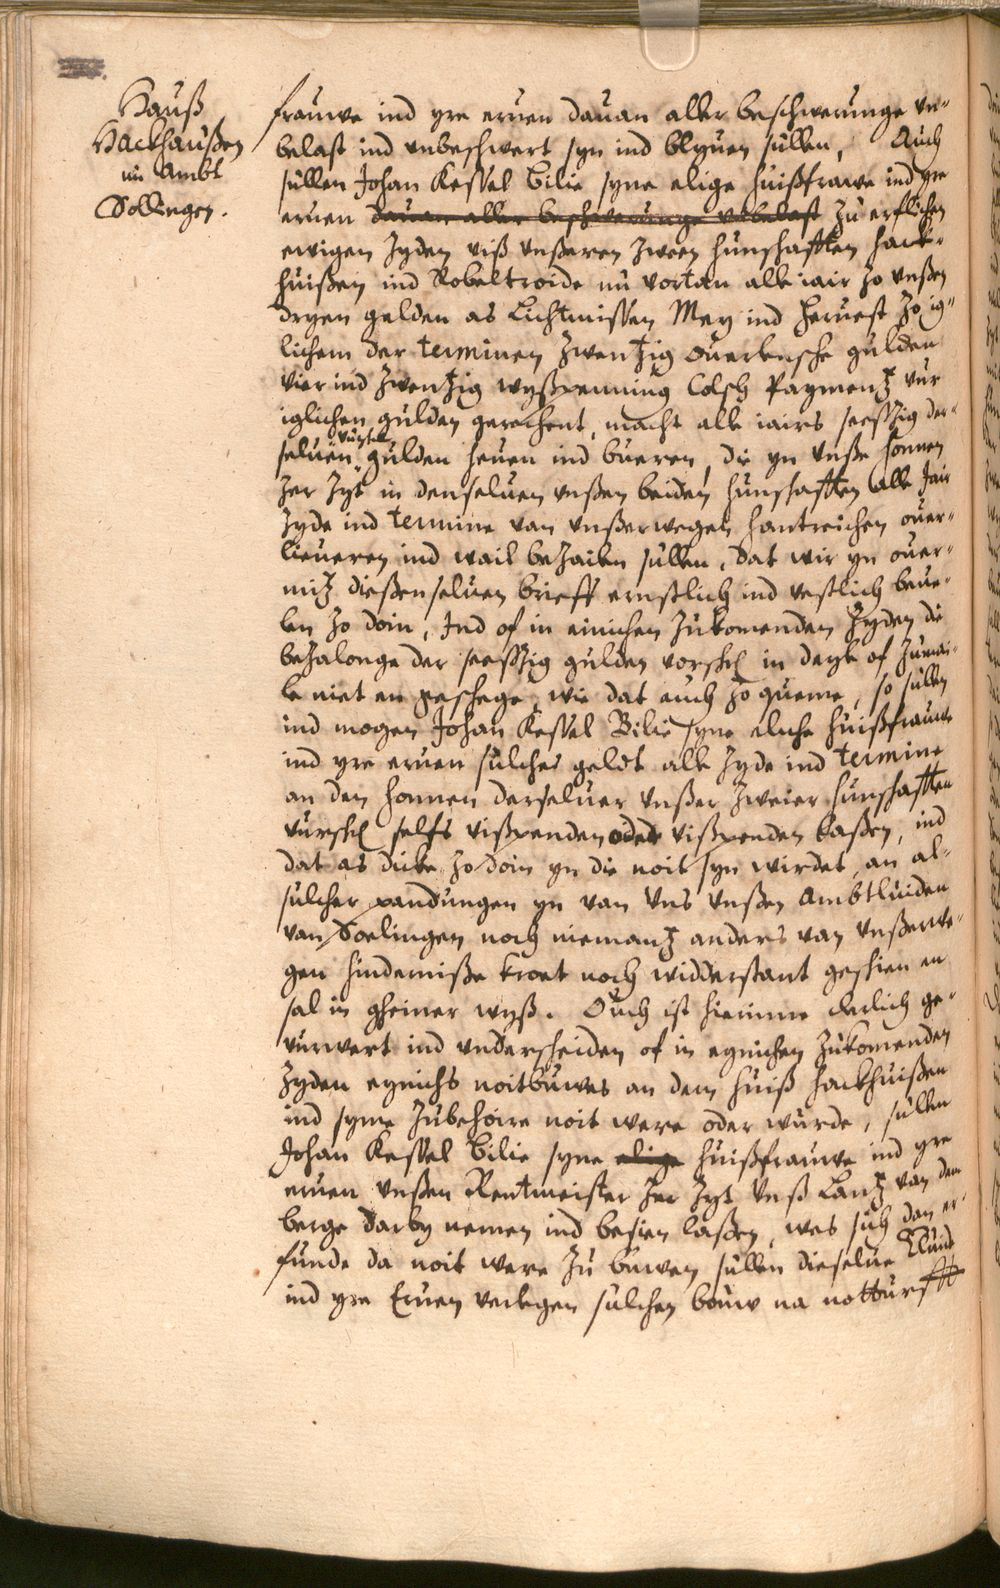 Hauß
Hackhaußen
im Ambt
Sollingen.
frauwe ind yre erven davan aller beschwerunge un-
belast ind unbeschwert syn ind blyven sullen, Auch
sullen Johan Kessel Bilie syne elige huißfrawe ind yre
erven davan aller beschwerunge unbelast zu erflichen
ewigen zyden uiß unßeren zween hunschafften hack-
huißen ind Robeltroide nu vortan alle iair zo unßen
dryen gelden as Lichtmissen Mey ind hervest zo ig-
lichem der terminen zwentzig overlensche gulden
vier ind zwentzig wyßpenning Colsch Paymentz vur
iglichen gulden gerechent, macht alle iairs seeßzig der-
selven gulden heven ind bueren, die yn unße honnen
zer zyt in denselven unßen beiden hunschafften alle Jair
zyde ind termine van unßerwegen hantreichen over-
lieveren ind wail bezailen sullen, dat wir yn over-
mitz dießenselven brieff ernstlich ind vestlich beve-
len zo doin, Ind of in einichen zukomenden zyden die
bezalonge der seeßzig gulden vorschl in deyle of zumai-
le niet en geschege, wie dat auch zo queme, so sullen
ind mogen Johan Kessel Bilie syne eliche huißfrauwe
ind yre erven sulches geldt alle zyde ind termine
an den honnen derselver unßer zweier hunschafften
vurschl selfs uißpenden oder uißpenden laßen, ind
dat as dicke zo doin yn die noit syn wirdet, an al-
sulcher pandungen yn van uns unßen Ambtluiden
van Soelingen noch niemantz anders van unßerwe-
gen hindernisse kroet noch widderstant geschien en
sal in gheiner wyß. Ouch ist hierinne clerlich ge-
vurwert ind underscheiden of in eynichen zukomenden
zyden eynichs noitbuwes an dem huiß hackhuißen
ind syme zubehoire noit were oder wurde, sullen
Johan Kessel Bilie syne elige huißfrauwe ind yre
erven unßen Rentmeister zer zyt unß Lantz van dem
berge darby nemen ind besien laßen, wes sich dan er-
funde da noit were zu buwen sullen dieselve Eluide
ind yre Erven verlegen sulchen bouw na notturfft